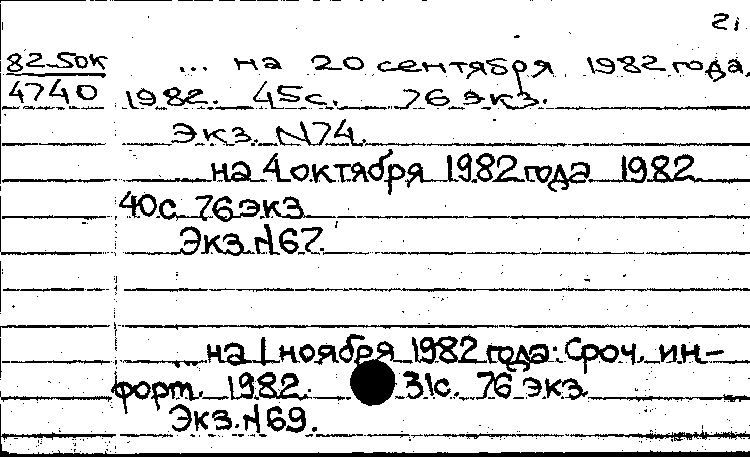 21
82-50к ... на 20 сентября 1982 года.
4740 1982. 45с. 76 экз.
Экз. N74.
... на 4 октября 1982 года 1982
40с. 76 экз
Экз. N67.
... на 1 ноября 1982 года. Сроч. ин-
форт. 1982. 31с. 76 экз.
Экз. N69.